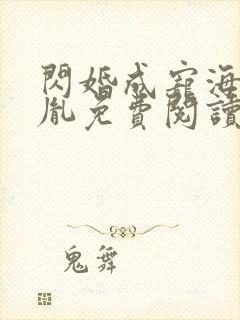 閃婚成寵海
胤免費閱讀
鬼舞